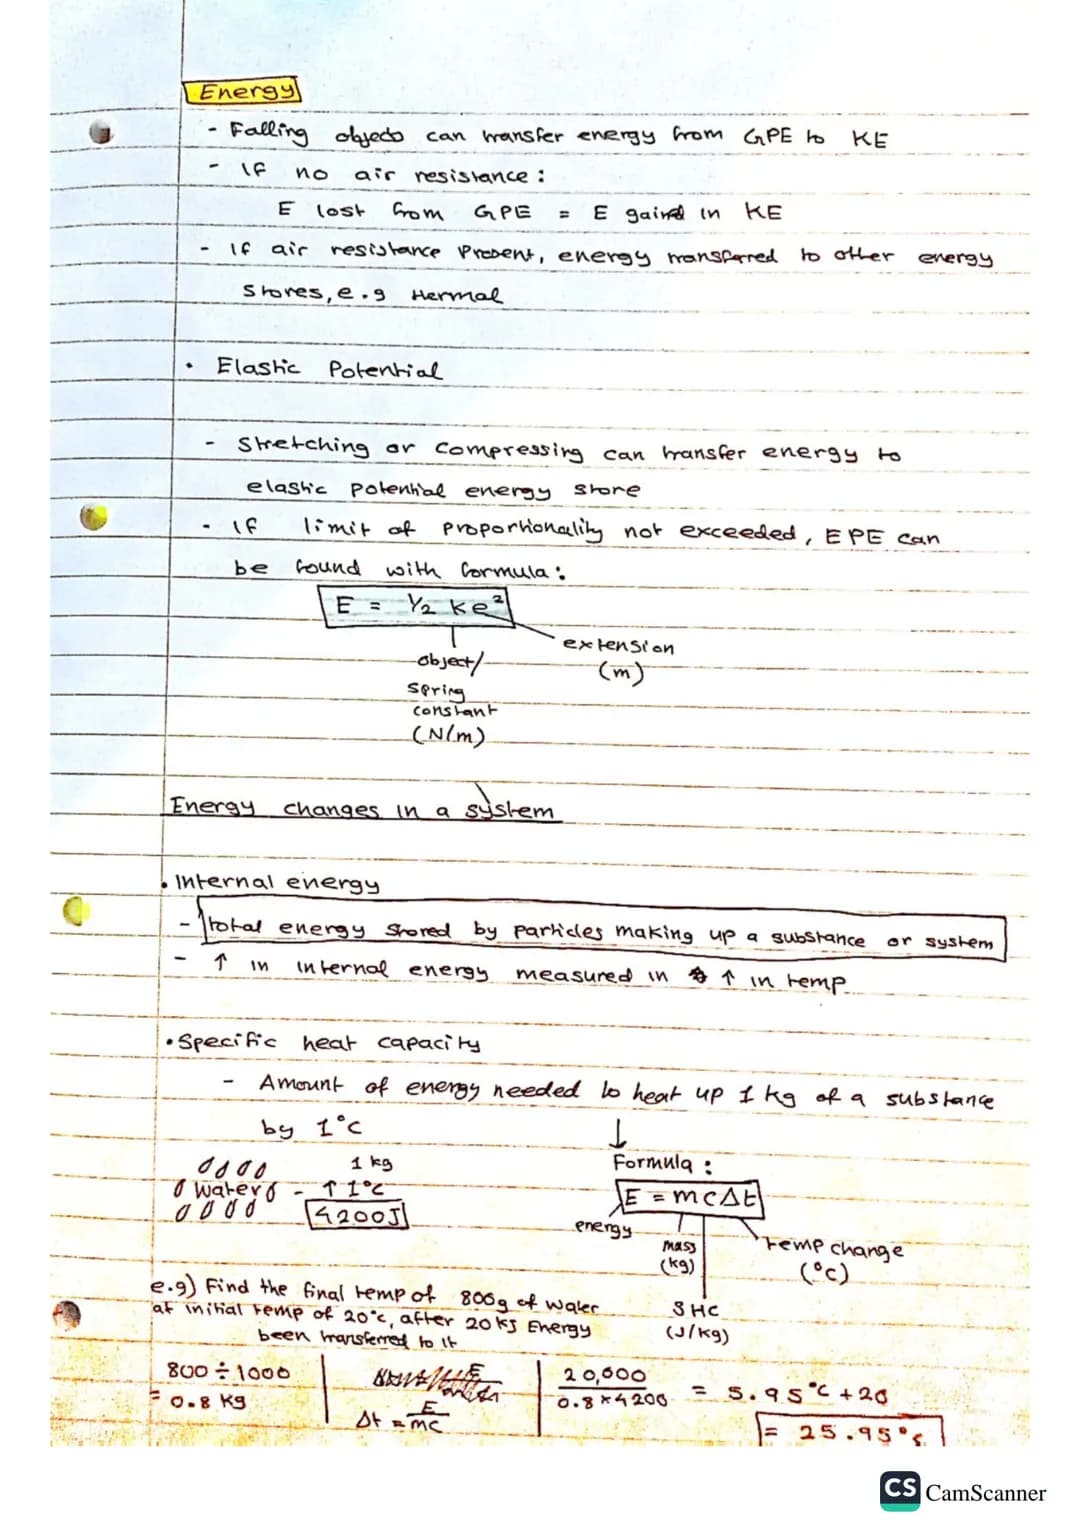 Energy
- Falling objects can transfer energy from GPE to KE
- If no air resistance :
E lost from GPE = E gained in KE
- If air resistance present, energy transferred to other energy
stores, e.g thermal
• Elastic Potential
- Stretching or compressing can transfer energy to
elastic potential energy store
- If limit of proportionality not exceeded, EPE can
be found with formula :
E = ½ ke²
extension
(m)
object/
spring
constant
(N/m)
Energy changes in a system
• Internal energy
- total energy stored by particles making up a substance or system
- ↑ in internal energy measured in ↑ in temp
• Specific heat capacity
- Amount of energy needed to heat up 1 kg of a substance
by 1°c
↓
Formula :
E = mcΔt
energy
mass
(kg)
SHC
(J/kg)
temp change
(°c)
water
1 kg
- ↑ 1°c
4200J
e.g) Find the final temp of 800g of water
at initial temp of 20°c, after 20 kJ Energy
been transferred to it
800 ÷ 1000
= 0.8 kg
Δt = E/mc
20,000 / 0.8 × 4200 = 5.95°c + 20
= 25.95°c
CS CamScanner